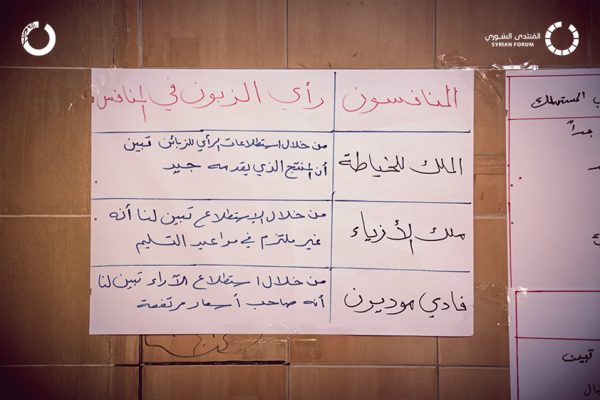 المنتدى السوري
SYRIAN FORUM
المنافسون
رأي الزبون في المنافس
الملك للخياطة
من خلال استطلاعات الرأي للزبائن تبين
أن المنتج الذي يقدمه جيد
ملك الأزياء
من خلال الإستطلاع تبين لنا أنه
غير ملتزم في مواعيد التسليم
فادي موديرن
من خلال استطلاع الآراء تبين لنا
أنه صاحب أسعار مرتفعة
المستهلك
جداً
تبين